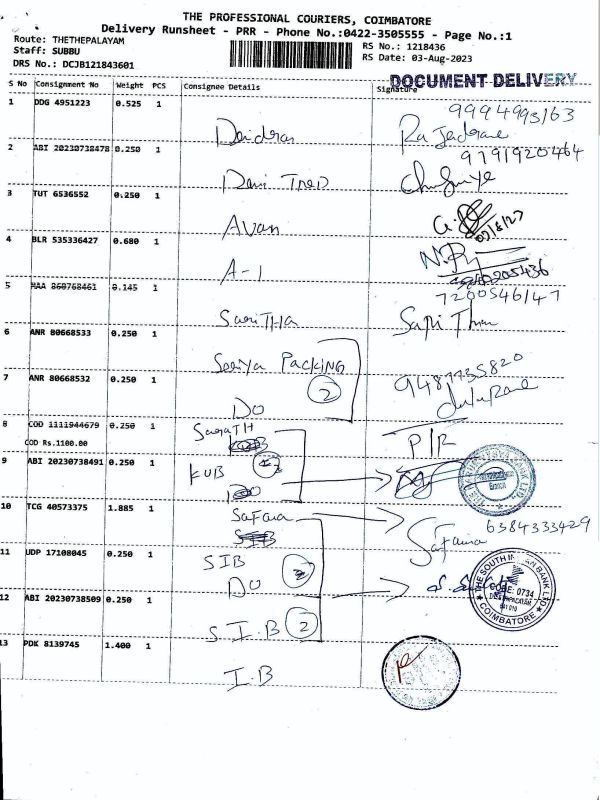 THE PROFESSIONAL COURIERS, COIMBATORE
Delivery Runsheet - PRR - Phone No.:0422-3505555 - Page No.:1
Route: THETHEPALAYAM
Staff: SUBBU
DRS No.: DCJB121843601
RS No.: 1218436
RS Date: 03-Aug-2023
DOCUMENT DELIVERY
S No Consignment No Weight PCS Consignee Details Signature
1 DDG 4951223 0.525 1
9994993163
2 ABI 20230738478 0.250 1
9791920464
Devi Tred
3 TUT 6536552 0.250 1
Avan
03/8/23
4 BLR 535336427 0.680 1
A-1
5 MAA 860768461 0.145 1
7200546147
SariTHa
6 ANR 80668533 0.250 1
Seeriya Packing
7 ANR 80668532 0.250 1
2
9487735820
DO
8 COD 1111944679 0.250 1
COD Rs.1100.00
P/R
9 ABI 20230738491 0.250 1
KUB
10 TCG 40573375 1.885 1
SaFana
6384333429
SaFana
11 UDP 17108045 0.250 1
SIB
DO
2
THE SOUTH INDIAN BANK LTD
CODE: 0734
COIMBATORE
12 ABI 20230738509 0.250 1
S.I.B 2
13 PDK 8139745 1.400 1
I.B